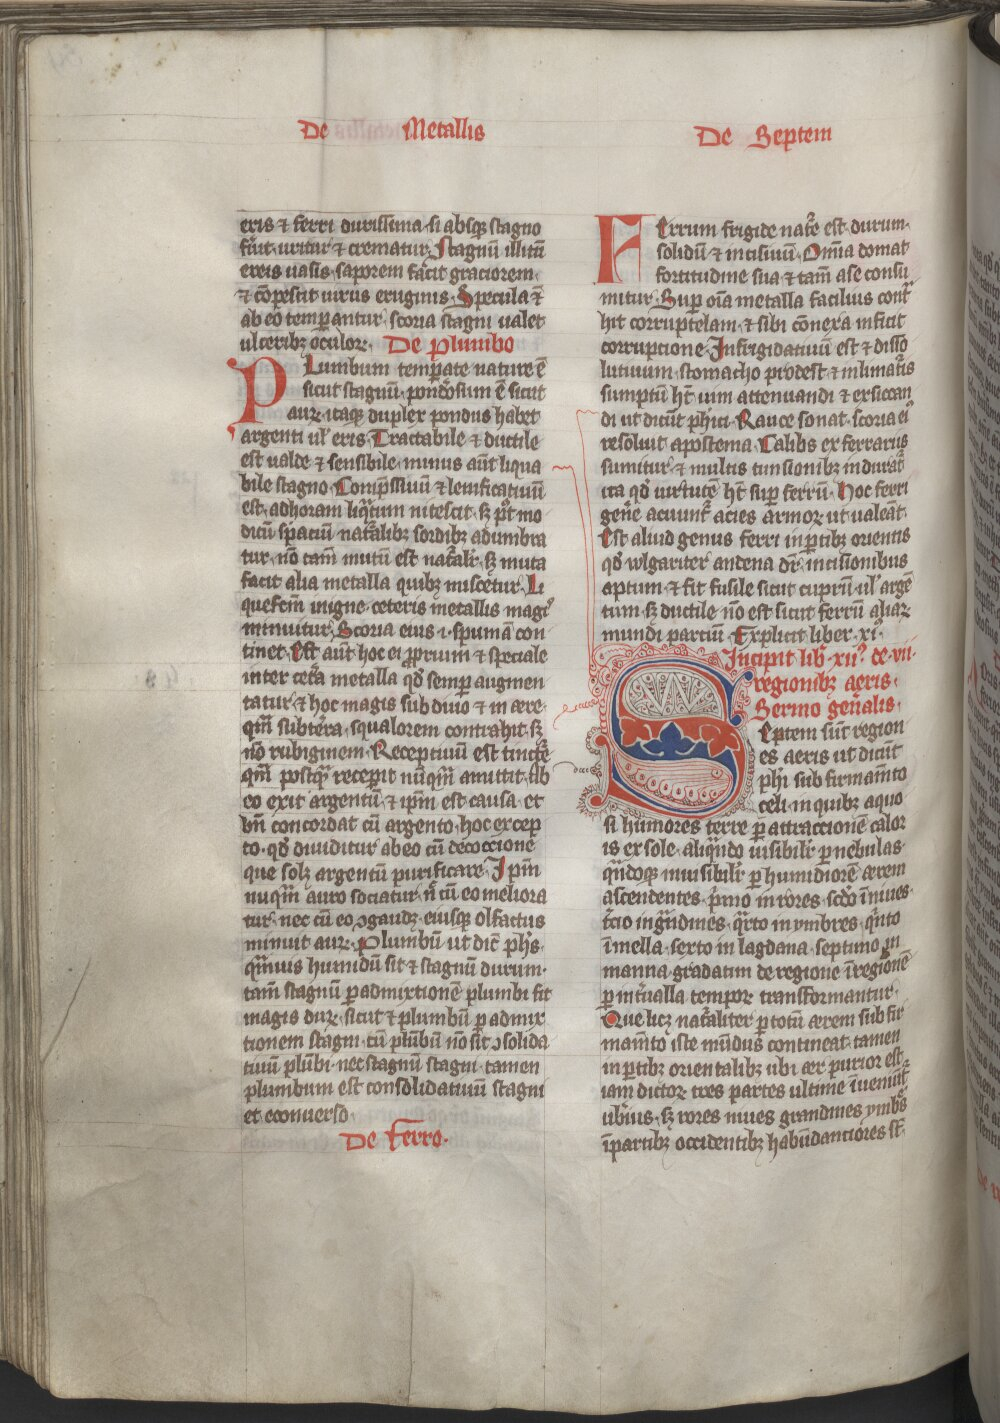 De Metallis
eris ⁊ ferri durissima si absqꝫ stagno
fu̾it uritur ⁊ crematur. Stagnū illitū
ereis uasis saporem fac̾it graciorem
⁊ cōpescit uirus eruginis. Specula ē
ab eo temperantur scoria stagni ualet
ulceribꝫ oculoꝝ. De plumbo
PLumbum temperate nature ē
sicut stagnum pond̾osum ē sicut
auꝝ itaqꝫ duplex pondus habet
argenti ul̾ eris. Tractabile ⁊ ductile
est ualde ⁊ sensibile minus aūt liqua
bile stagno. Comp̄ssiuū ⁊ lenificatiuū
est. ad horam liq̄tum nitescit. sꝫ p̾t mo
dicū spaciū nat̾alibꝫ sordibꝫ adumbra
tur. nō tam̄ mutū est nat̾alr̄. sꝫ muta
facit alia metalla quibꝫ miscetur. Li
quefcm̄ in igne ceteris metallis magis
minuitur. Scoria eius .i. spumā con
tinet. Est aūt hoc ei ꝓprium ⁊ speciale
inter cet̾a metalla qd̾ semper augmen
tatur. ⁊ hoc magis sub diuo ⁊ in aere
q̄m subter̾a. squalorem contrahit. sꝫ
nō rubiginem. Receptiuū est tinct̾e
q̄m postq̄ recepit nūq̄m amittit. sub
eo exit argentū. ⁊ ipm̄ est causa. et
bn̄ concordat cū argento. hoc excep
to. qd̾ diuiditur ab eo cū decoccione
que solꝫ argentū purificare. Ipm̄
nuq̄m auro sociatur n̄ cū eo meliora
tur. nec cū eo ꝯgaudꝫ. eiusqꝫ olfactus
minuit auꝝ. Plumbū ut dic̄ ph̄s
q̄muis humidū sit ⁊ stagnū durum.
tam̄ stagnū ꝑ admixtionē plumbi fit
magis duꝝ. sicut ⁊ plumbū ꝑ admix
tionem stagni. cū plūbū nō sit ꝯsolida
tiuū plūbi. nec stagnū stagni. tamen
plumbum est consolidatiuū stagni
et econuerso.
De Ferro.
De Septem
FErrum frigide nat̾e est. durum.
solidū ⁊ incisiuū. Om̄ia domat
fortitudine sua ⁊ tam̄ a se consu
mitur. Sup̱ oīa metalla facilius cont̾
hit corruptelam. ⁊ sibi cōnexa inficit
corruptione. Infrigidatiuū est ⁊ disso
lutiuum. stomacho prodest. ⁊ in limatur̾is
sumptū ht̄ uim attenuandi ⁊ exsiccan
di ut dicūt phici. Rauce sonat. scoria ei᾽
resoluit apostema. Calibs ex ferrarijs
sumitur. ⁊ multis tunsionibꝫ indurat̾
ita qd̾ uirtutē ht̄ sup̱ ferrū. Hoc ferri
gen̄e acuunt̾ acies armoꝝ ut ualeāt.
Est aliud genus ferri in ꝑtibꝫ orientis
qd̾ wlgariter andena dr̄. incisionibus
aptum. ⁊ fit fusile sicut cuprū ul̾ argē
tum. sꝫ ductile nō est sicut ferrū aliaꝝ
mundi parciū. Explicit liber .xi᾽.
Incipit lib̄ .xij᾽. de .vii.
regionibꝫ aeris.
Sermo gen̄alis.
SEptem sūt region
es aeris ut dicūt
ph̄i sub firmam̄to
celi. in quibꝫ aquo
si humores terre ꝑ attraccionē calor
is ex sole. aliq̄ndo uisibilr̄ ꝑ nebulas
q̄ndoqꝫ inuisibilr̄ ꝑ humidiorē aerem
ascendentes. p̾mo in rores. scd̾o ī niues.
t̾cio in g̾ndines. q̾rto in ymbres. q̾nto
ī mella. sexto in lagdana. septimo in
manna gradatim de regione ī regionē
ꝑ int̾ualla tempoꝝ transformantur.
Que licꝫ nat̾aliter ꝑ totū aerem sub fir
mam̄to iste mūdus contineat. tamen
in ꝑtibꝫ orientalibꝫ ubi aer purior est
iam dictoꝝ tres partes ultime īueniūt̾
ub̾ius. sꝫ rores niues grandines ymb̾s
ī partibꝫ occidentibꝫ habūdantiores st̄.